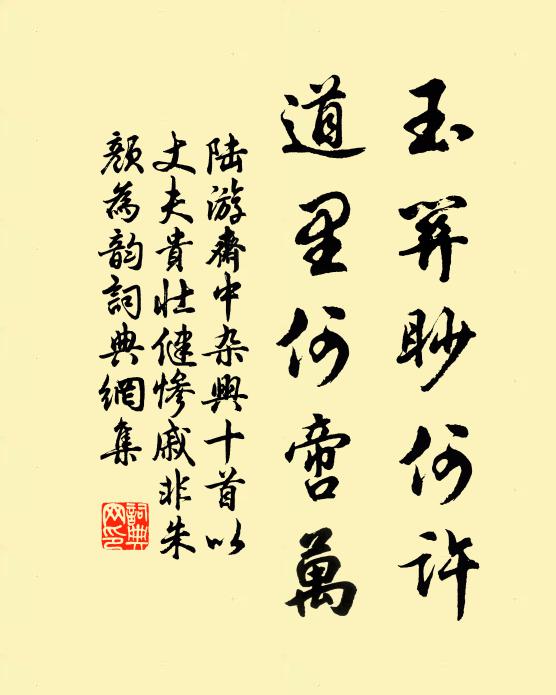 玉關眇何許
道里何啻萬
陸游齋中杂興十首以
丈夫貴壯健慘戚非朱
顏為韵詞典網集
詞典网印